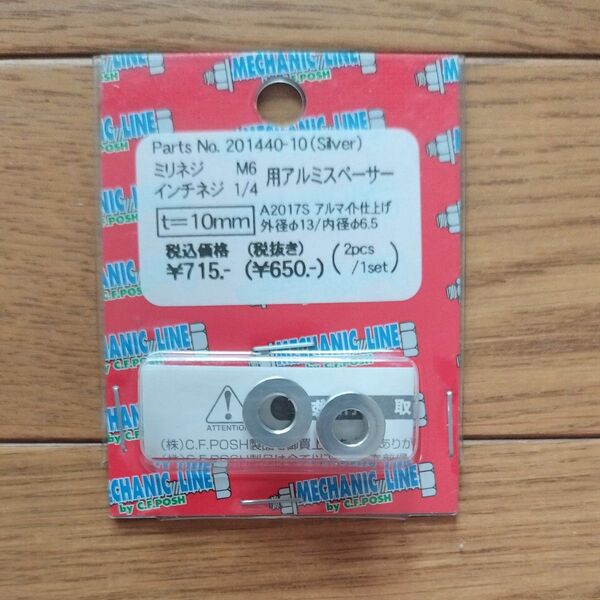 MECHANIC LINE
by C.F.POSH
Parts No. 201440-10(Silver)
ミリネジ M6
インチネジ 1/4
用アルミスペーサー
t=10mm
A2017S アルマイト仕上げ
外径φ13/内径φ6.5
税込価格 (税抜き)
¥715.- (¥650.-)
(2pcs/1set)
MECHANIC LINE
MECHANIC LINE
ATTENTION
取
(株)C.F.POSH製品を御買上
ありが
MECHANIC LINE
by C.F.POSH
MECHANIC LINE
by C.F.POSH